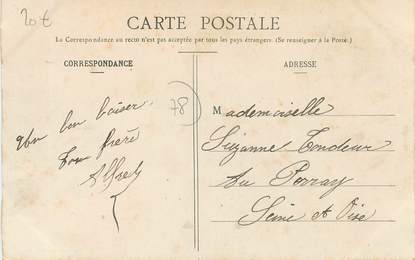 20€
CARTE POSTALE
La Correspondance au recto n'est pas acceptée par tous les pays étrangers. (Se renseigner à la Poste.)
CORRESPONDANCE
ADRESSE
78
Un bon baiser
Ton frère
Alfred
Mademoiselle
Suzanne Tondeur
Au Perray
Seine et Oise